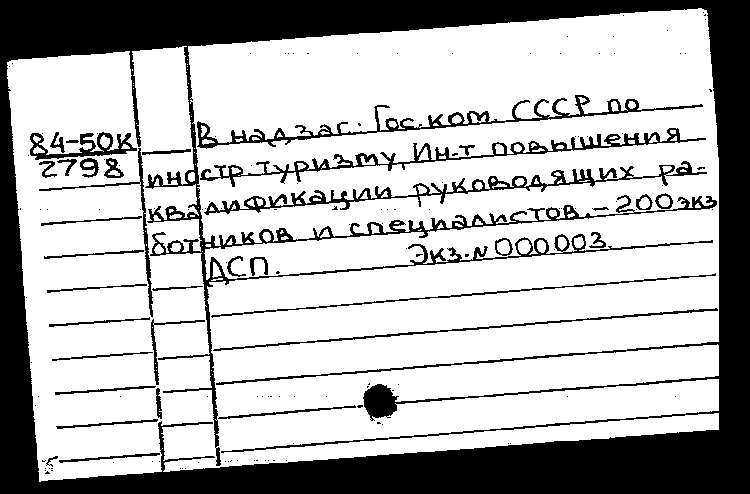 84-50К
2798
В надзаг.: Гос. ком. СССР по
иностр. туризму, Ин-т повышения
квалификации руководящих ра-
ботников и специалистов. – 200 экз
ДСП. Экз. N 000003.